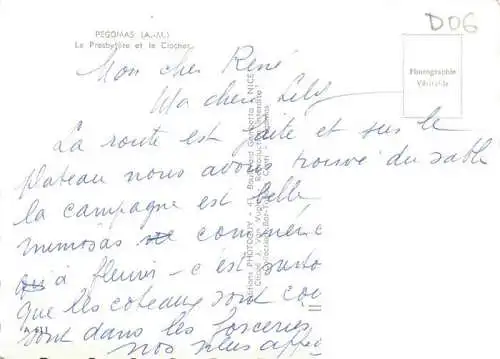 PEGOMAS (A.-M.)
Le Presbytère et le Clocher
D06
Photographie
Véritable
Mon cher René
Ma chère Lily
La route est faite et sur le
plateau nous avons trouvé du sable
la campagne est belle
mimosas commenc
à fleurir - c'est surto
que les coteaux sont cou
sont dans les
nos plus affec
Editions PHOTOGUY - 41, Boulevard Gambetta - NICE
Reproduction interdite